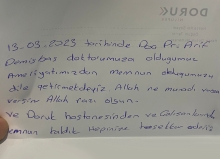 DORUK
13.03.2023 tarihinde Doç Dr. Arif
doktorumuza olduğumuz
Ameliyatımızdan memnun olduğumuzu
dile getirmekteyiz Allah ne muradı varsa
versin Allah razı olsun.
ve Doruk hastanesinden ve
memnun kaldık Hepinize teşekkür ederiz